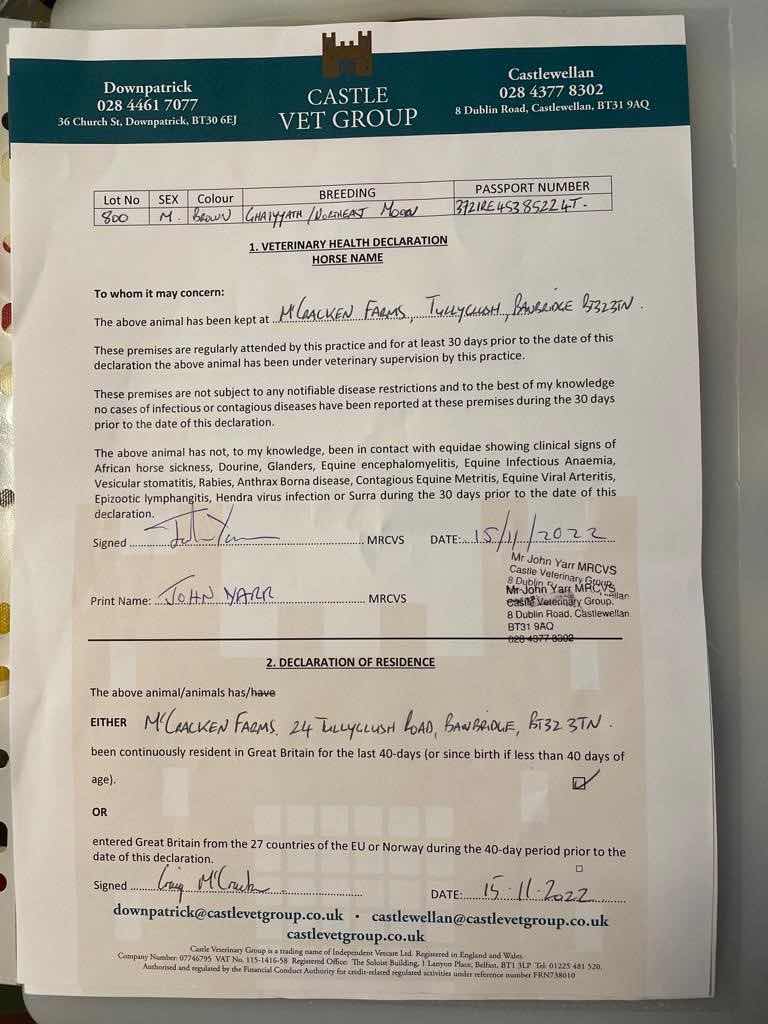 Downpatrick
028 4461 7077
36 Church St, Downpatrick, BT30 6EJ
CASTLE
VET GROUP
Castlewellan
028 4377 8302
8 Dublin Road, Castlewellan, BT31 9AQ
Lot No SEX Colour BREEDING PASSPORT NUMBER
800 M. BROWN GHAIYYATH/NORTHEAST MOON 372IRE45385224T.
1. VETERINARY HEALTH DECLARATION
HORSE NAME
To whom it may concern:
The above animal has been kept at McCRACKEN FARMS, TULLYCLUSH, BANBRIDGE BT323TN.
These premises are regularly attended by this practice and for at least 30 days prior to the date of this
declaration the above animal has been under veterinary supervision by this practice.
These premises are not subject to any notifiable disease restrictions and to the best of my knowledge
no cases of infectious or contagious diseases have been reported at these premises during the 30 days
prior to the date of this declaration.
The above animal has not, to my knowledge, been in contact with equidae showing clinical signs of
African horse sickness, Dourine, Glanders, Equine encephalomyelitis, Equine Infectious Anaemia,
Vesicular stomatitis, Rabies, Anthrax Borna disease, Contagious Equine Metritis, Equine Viral Arteritis,
Epizootic lymphangitis, Hendra virus infection or Surra during the 30 days prior to the date of this
declaration.
Signed John Yarr MRCVS DATE: 15/11/2022
Mr John Yarr MRCVS
Castle Veterinary Group
8 Dublin
Mr John Yarr MRCVS
Castle Veterinary Group.
8 Dublin Road. Castlewellan
BT31 9AQ
028 4377 8302
Print Name: JOHN YARR MRCVS
2. DECLARATION OF RESIDENCE
The above animal/animals has/have
EITHER McCRACKEN FARMS, 24 TULLYCLUSH ROAD, BANBRIDGE, BT32 3TN.
been continuously resident in Great Britain for the last 40-days (or since birth if less than 40 days of
age).
OR
entered Great Britain from the 27 countries of the EU or Norway during the 40-day period prior to the
date of this declaration.
Signed Craig McCracken DATE: 15.11.2022
downpatrick@castlevetgroup.co.uk • castlewellan@castlevetgroup.co.uk
castlevetgroup.co.uk
Castle Veterinary Group is a trading name of Independent Vetcare Ltd. Registered in England and Wales
Company Number: 07746795 VAT No. 115-1416-58 Registered Office: The Soloist Building, 1 Lanyon Place, Belfast, BT1 3LP Tel: 01225 481 520.
Authorised and regulated by the Financial Conduct Authority for credit-related regulated activities under reference number FRN738010